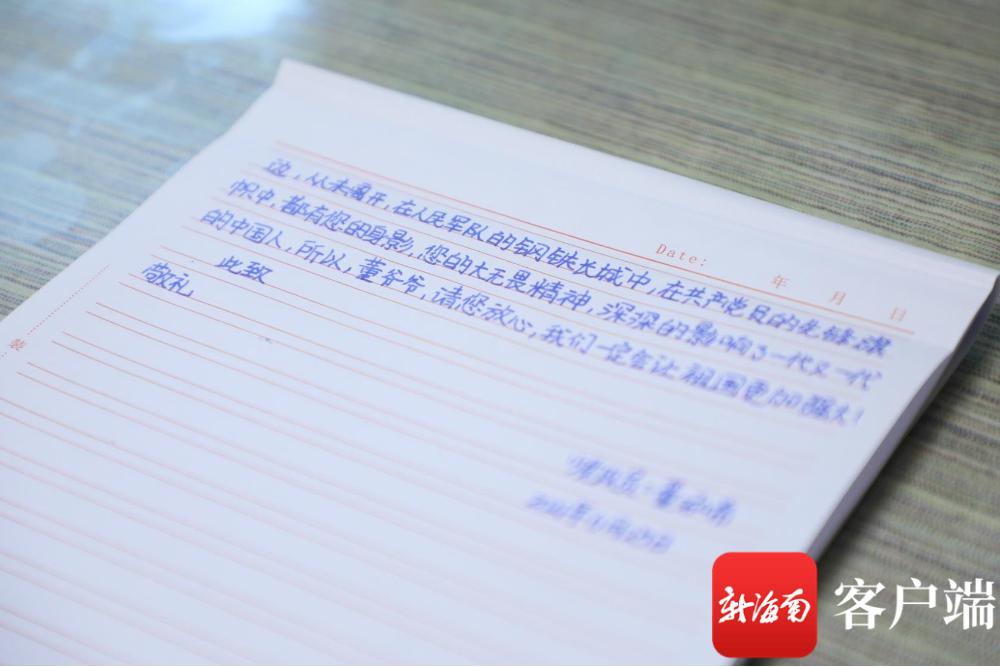 Date: 年 月 日
边，从未离开，在人民军队的钢铁长城中，在共产党员的先锋旗
帜中，都有您的身影，您的大无畏精神，深深的影响了一代又一代
的中国人，所以，董爷爷，请您放心，我们一定会让祖国更加强大！
此致
敬礼
装
新海南 客户端